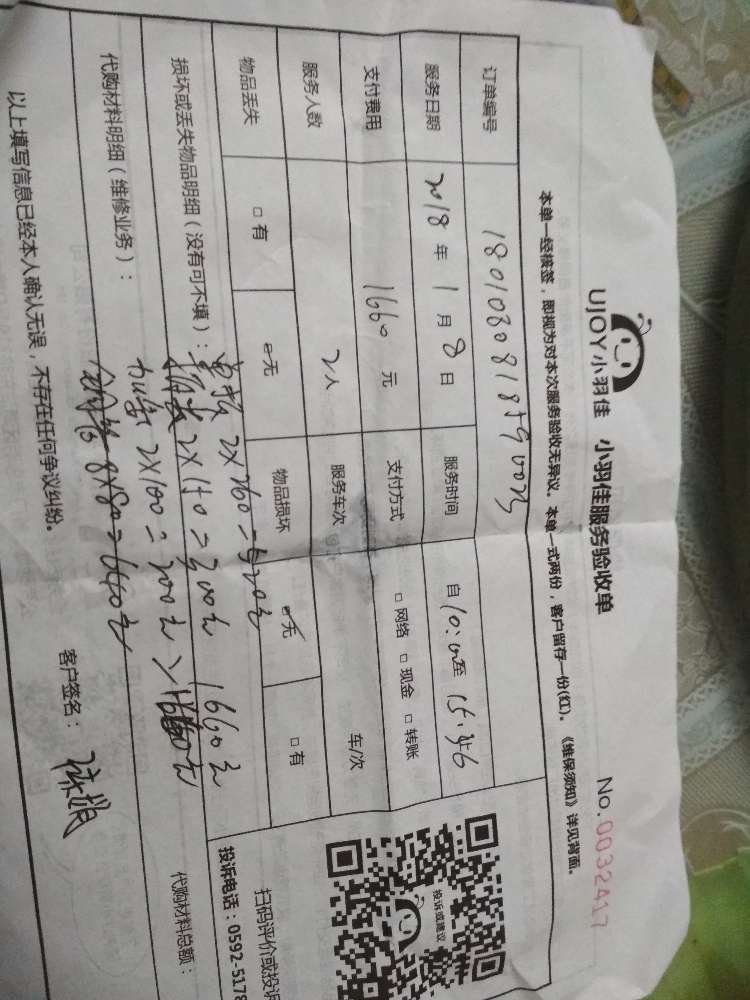 UJOY小羽佳 小羽佳服务验收单 No.0032417
本单一经核签，即视为对本次服务验收无异议。本单一式两份，客户留存一份(红)。《维保须知》详见背面。
订单编号
服务日期 2018年1月8日 服务时间 自10:00至15:56
支付费用 1660元 支付方式 □网络 □现金 □转账
服务人数 2人 服务车次 车/次
物品丢失 □有 □无 物品损坏 □无 □有
损坏或丢失物品明细（没有可不填）：
2×260=520元
2×150=300元 1660元
代购材料明细（维修业务）： 2×100=200元 代购材料总额：
8×80=640元
以上填写信息已经本人确认无误，不存在任何争议纠纷。 客户签名：
投诉或建议
扫码评价或投诉
投诉电话：0592-5178